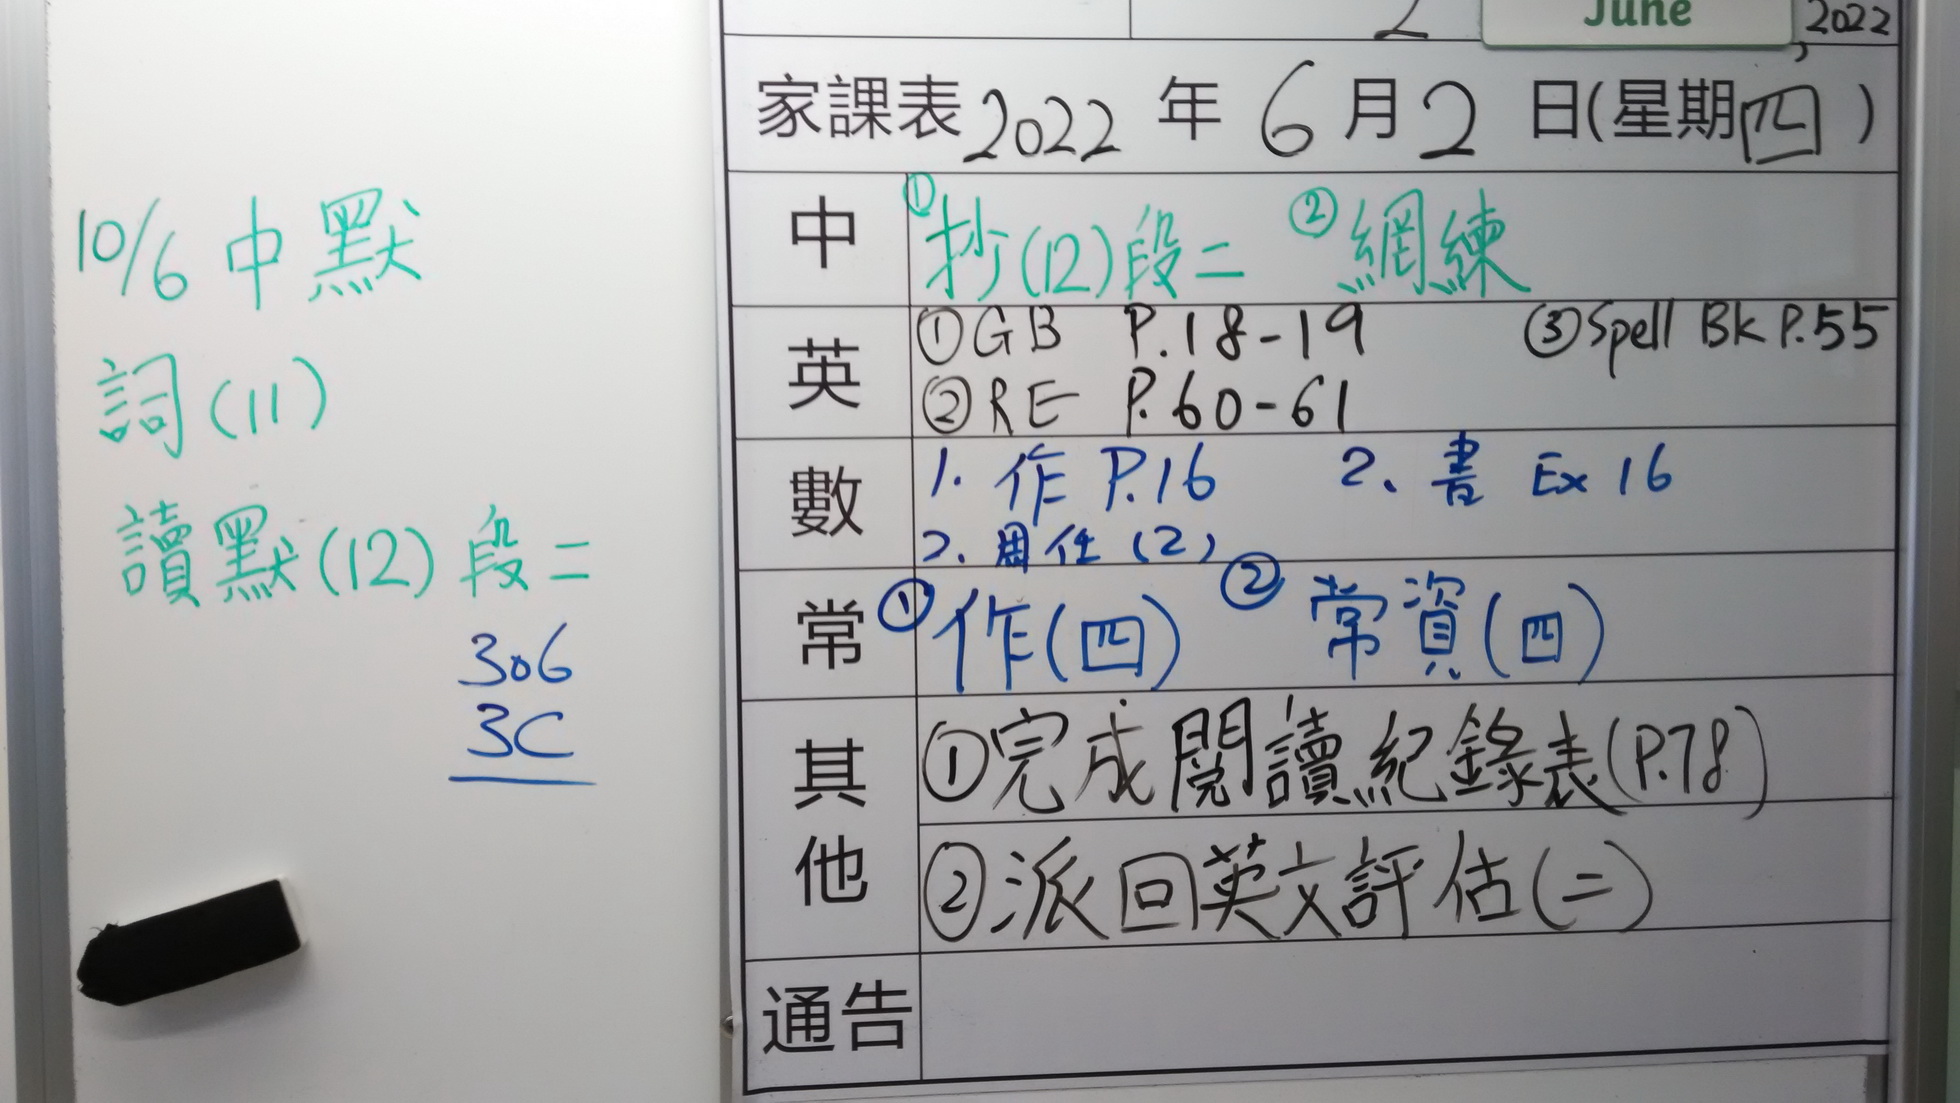 2 June, 2022
家課表 2022 年 6 月 2 日(星期四)
10/6 中默
詞(11)
讀默(12)段二
306
3C
中
①抄(12)段二 ②網練
英
①GB P.18-19 ③Spell Bk P.55
②RE P.60-61
數
1. 作 P.16 2. 書 Ex 16
(2)
常
①作(四) ②常資(四)
其他
①完成閱讀紀錄表(P.78)
②派回英文評估(二)
通告